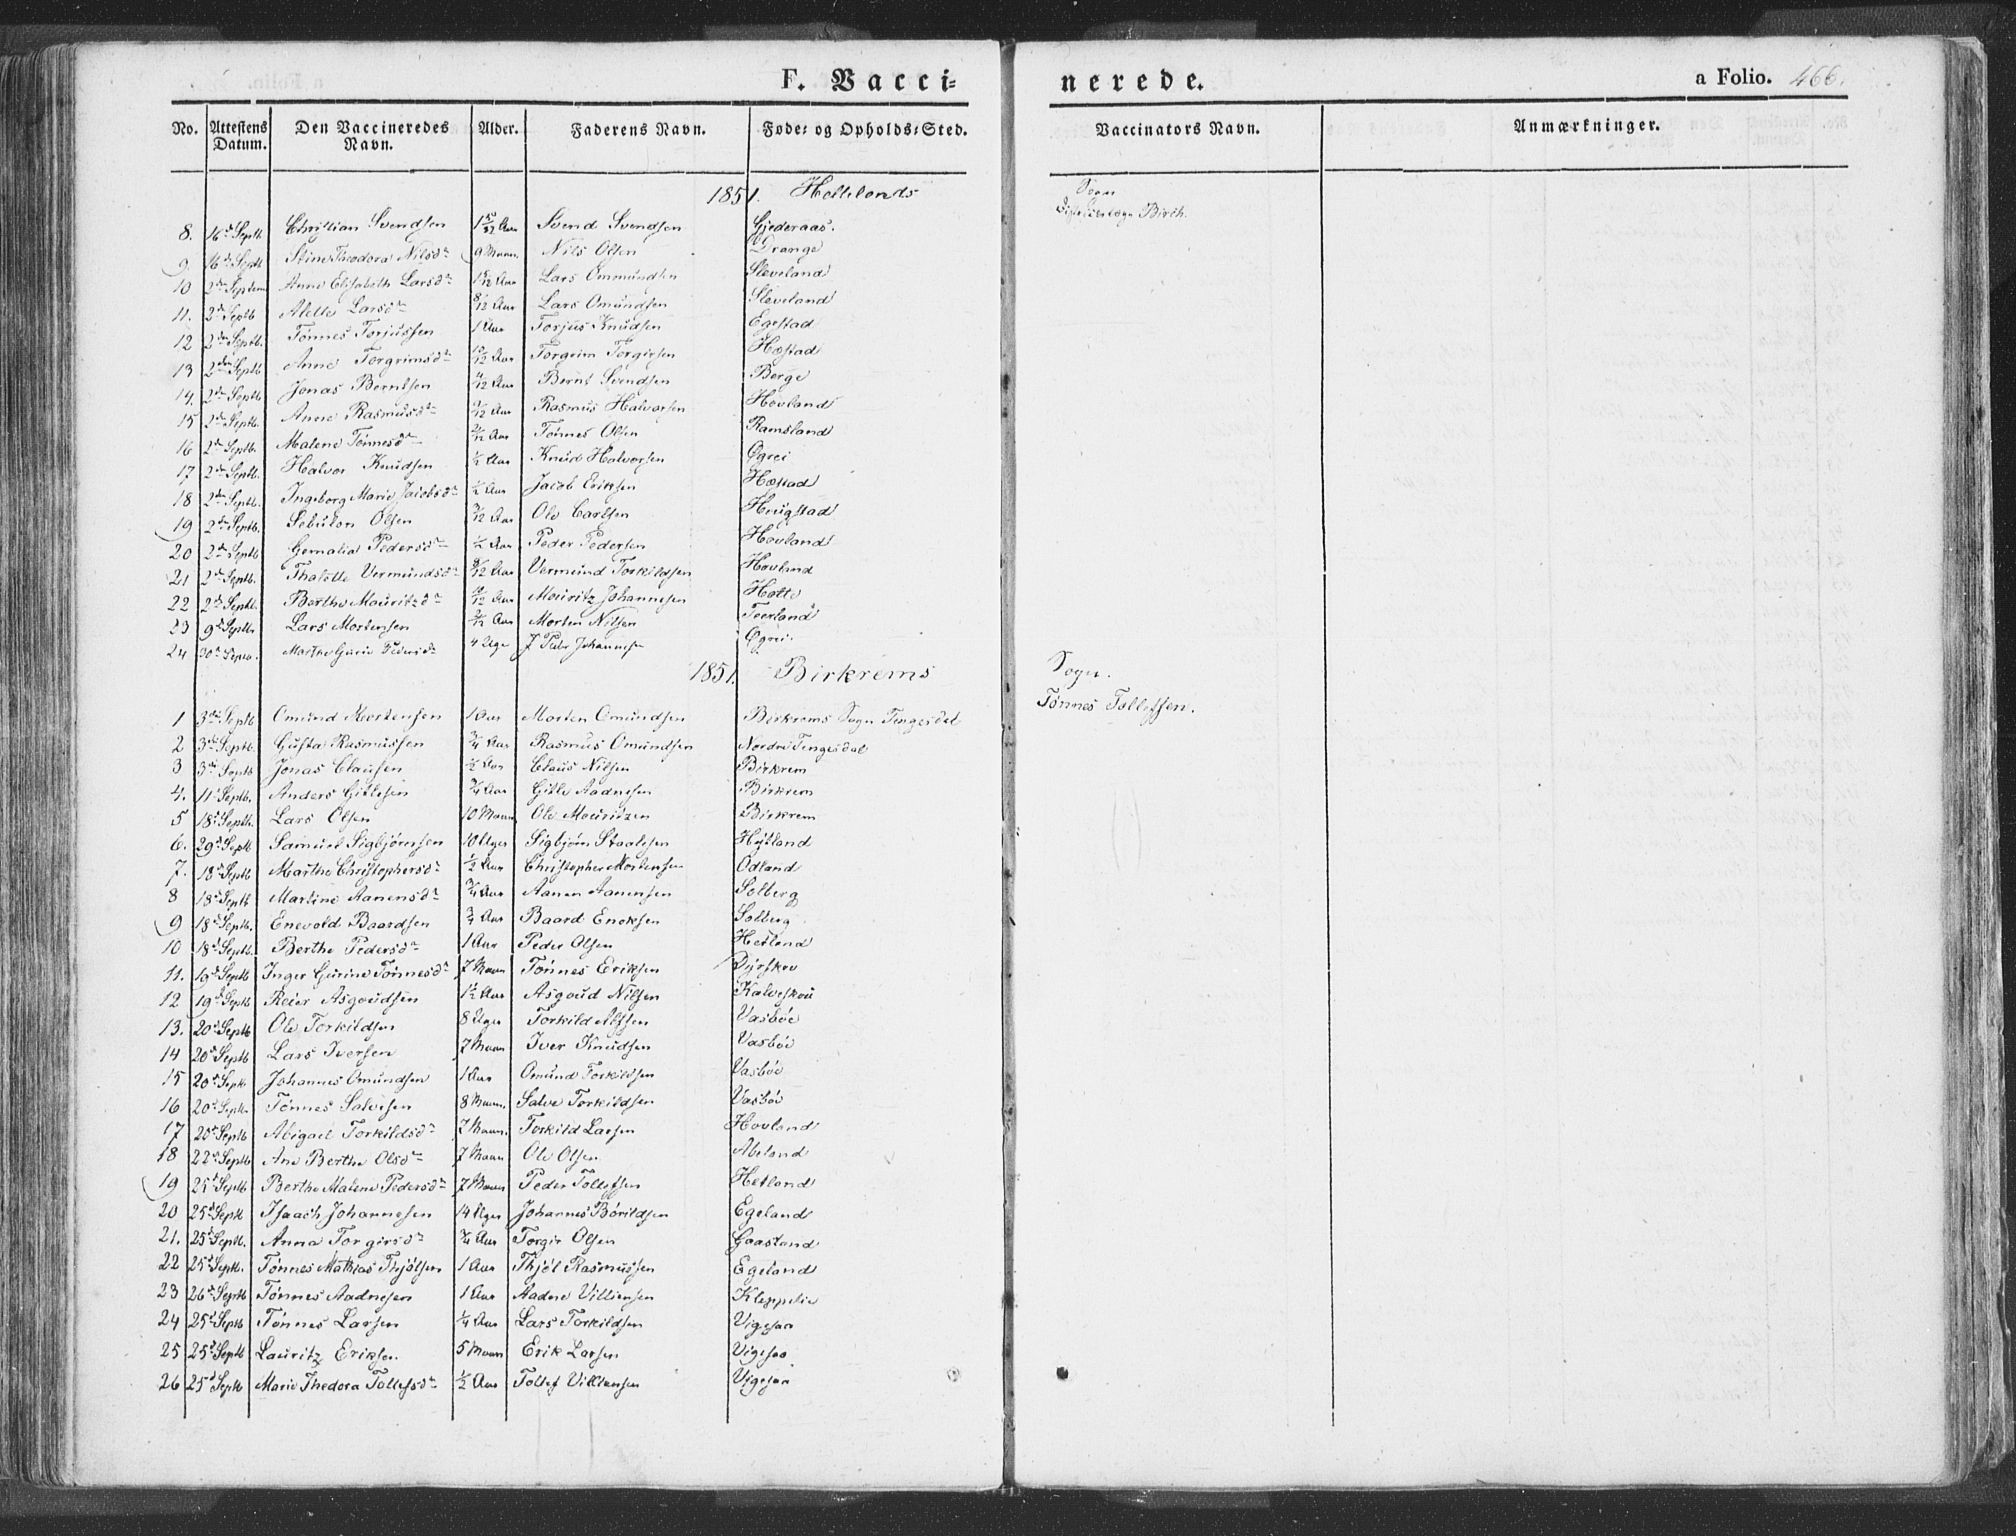 F. Vacci= nerede. a Folio. 466.
No. Attestens Datum. Den Vaccineredes Navn. Alder. Faderens Navn. Føde= og Opholds=Sted. Vaccinators Navn. Anmærkninger.
1851. Hellelands Sogn
8. 16d Septb Christian Svendsen Aar Svend Svendsen Gjederaas. Birch.
9 16d Septb Stine Theodora Nilsdr 9 Maan. Nils Olsen Drange
10 2den Septem Anne Elisabeth Larsdr Aar Lars Ommundsen Sleveland
11. 2d Septb Alette Larsdr 8/12 Aar Lars Omundsen Sleveland
12 2den Septb. Tønnes Torjussen 1 Aar Torjus Knudsen Egestad
13 2den Septb Anne Torgrimsdr 10/12 Aar Torgrim Torgersen Hæstad
14. 2den Septb Jonas Berntsen Aar Bernt Svendsen Berge
15 2den Septb. Anne Rasmusdr Aar Rasmus Halvorsen Hovland
16 2den Septb. Malene Tønnesdr Aar Tønnes Olsen Ramsland
17 2den Septb. Halvor Knudsen 1/2 Aar Knud Halvorsen Øgrei
18 2den Septb. Ingeborg Marie Jacobsdr 1/2 Aar Jacob Eriksen Hæstad
19 2den Septb. Sebulon Olsen Aar Ole Carlsen Heugstad
20 2den Septb Gemalia Pedersdr 1/2 Aar Peder Pedersen Hovland
21 2den Septb. Thalette Vermundsdr Aar Vermund Torkildsen Hovland
22 2den Septb. Berthe Mauritzdr 10/12 Aar Mauritz Johannesen Hatte
23 9d Septb Lars Mortensen Aar Morten Nilsen Terland
24 30d Septb. Marthe Gurie Pedersdr 4 Uge Peder Johannesen Øgrei.
1851. Birkrems Sogn.
1 3die Septb Omund Mortensen 1 Aar Morten Omundsen Birkrems Sogn Tengesdal Tønnes Tollefsen.
2 3die Septb. Gusta Rasmussen 3/4 Aar Rasmus Omundsen Nordre Tengesdal
3 3die Septb Jonas Clausen 1/2 Aar Claus Nilsen Birkrem
4. 11 Septb. Anders Gitlesen 3/4 Aar Gitle Aadnesen Birkrem
5 18d Septb. Lars Olsen 10 Maan Ole Mauritzen Birkrem
6. 29d Septb Samuel Sigbjørnsen 10 Uger Sigbjørn Staalesen Hetland
7. 18d Septb Marthe Christophersdr 1/2 Aar Christopher Mortensen Ødland
8 18d Septb Martine Aanensdr 3/4 Aar Aanen Aanensen Solberg
9 18d Septb. Enevold Baardsen 3/4 Aar Baard Enoksen Solberg
10 18d Septb. Berthe Pedersdr 1 Aar Peder Olsen Hetland
11. 19d Septb Inger Gurine Tønnesdr 7 Maan Tønnes Eriksen Dyrskou
12 19d Septb Reier Asgoudsen 1½ Aar Asgoud Nilsen Kalveskou
13. 20d Septb Ole Torkildsen 8 Uger Torkild Alfsen Vasbøe
14 20d Septb Lars Iversen 7 Maan Iver Knudsen Vasbøe
15 20d Septb Johannes Omundsen 1 Aar Omund Torkildsen Vasbøe
16 20d Septb. Tønnes Salvesen 8 Maan. Salve Torkildsen Vasbøe
17 20d Septb Abigael Torkildsdr 7 Maan. Torkild Larsen Hovland
18 22d Septb Ane Berthe Olsdr 7 Maan Ole Olsen Abeland
19 25d Septb Berthe Malene Pedersdr 7 Maan Peder Tollefsen Hetland
20 25d Septb Isaach Johannesen 14 Uger Johannes Børildsen Egeland
21. 25d Septb. Anna Torgirsdr 3/4 Aar Torgir Olsen Gaasland
22 25d Septb. Tønnes Mathias Thjølsen 1 Aar Thjøl Rasmussen Egeland
23 26d Septb Tønnes Aadnesen 1 Aar Aadne Villiensen Kleppelie
24 25d Septb Tønnes Larsen 1/4 Aar Lars Torkildsen Vigesaa
25 25d Septb Lauritz Eriksen 5 Maan Erik Larsen Vigesaa
26 25d Septb Marie Thedora Tollefsdr 1/2 Aar Tollef Villiensen Vigesaa